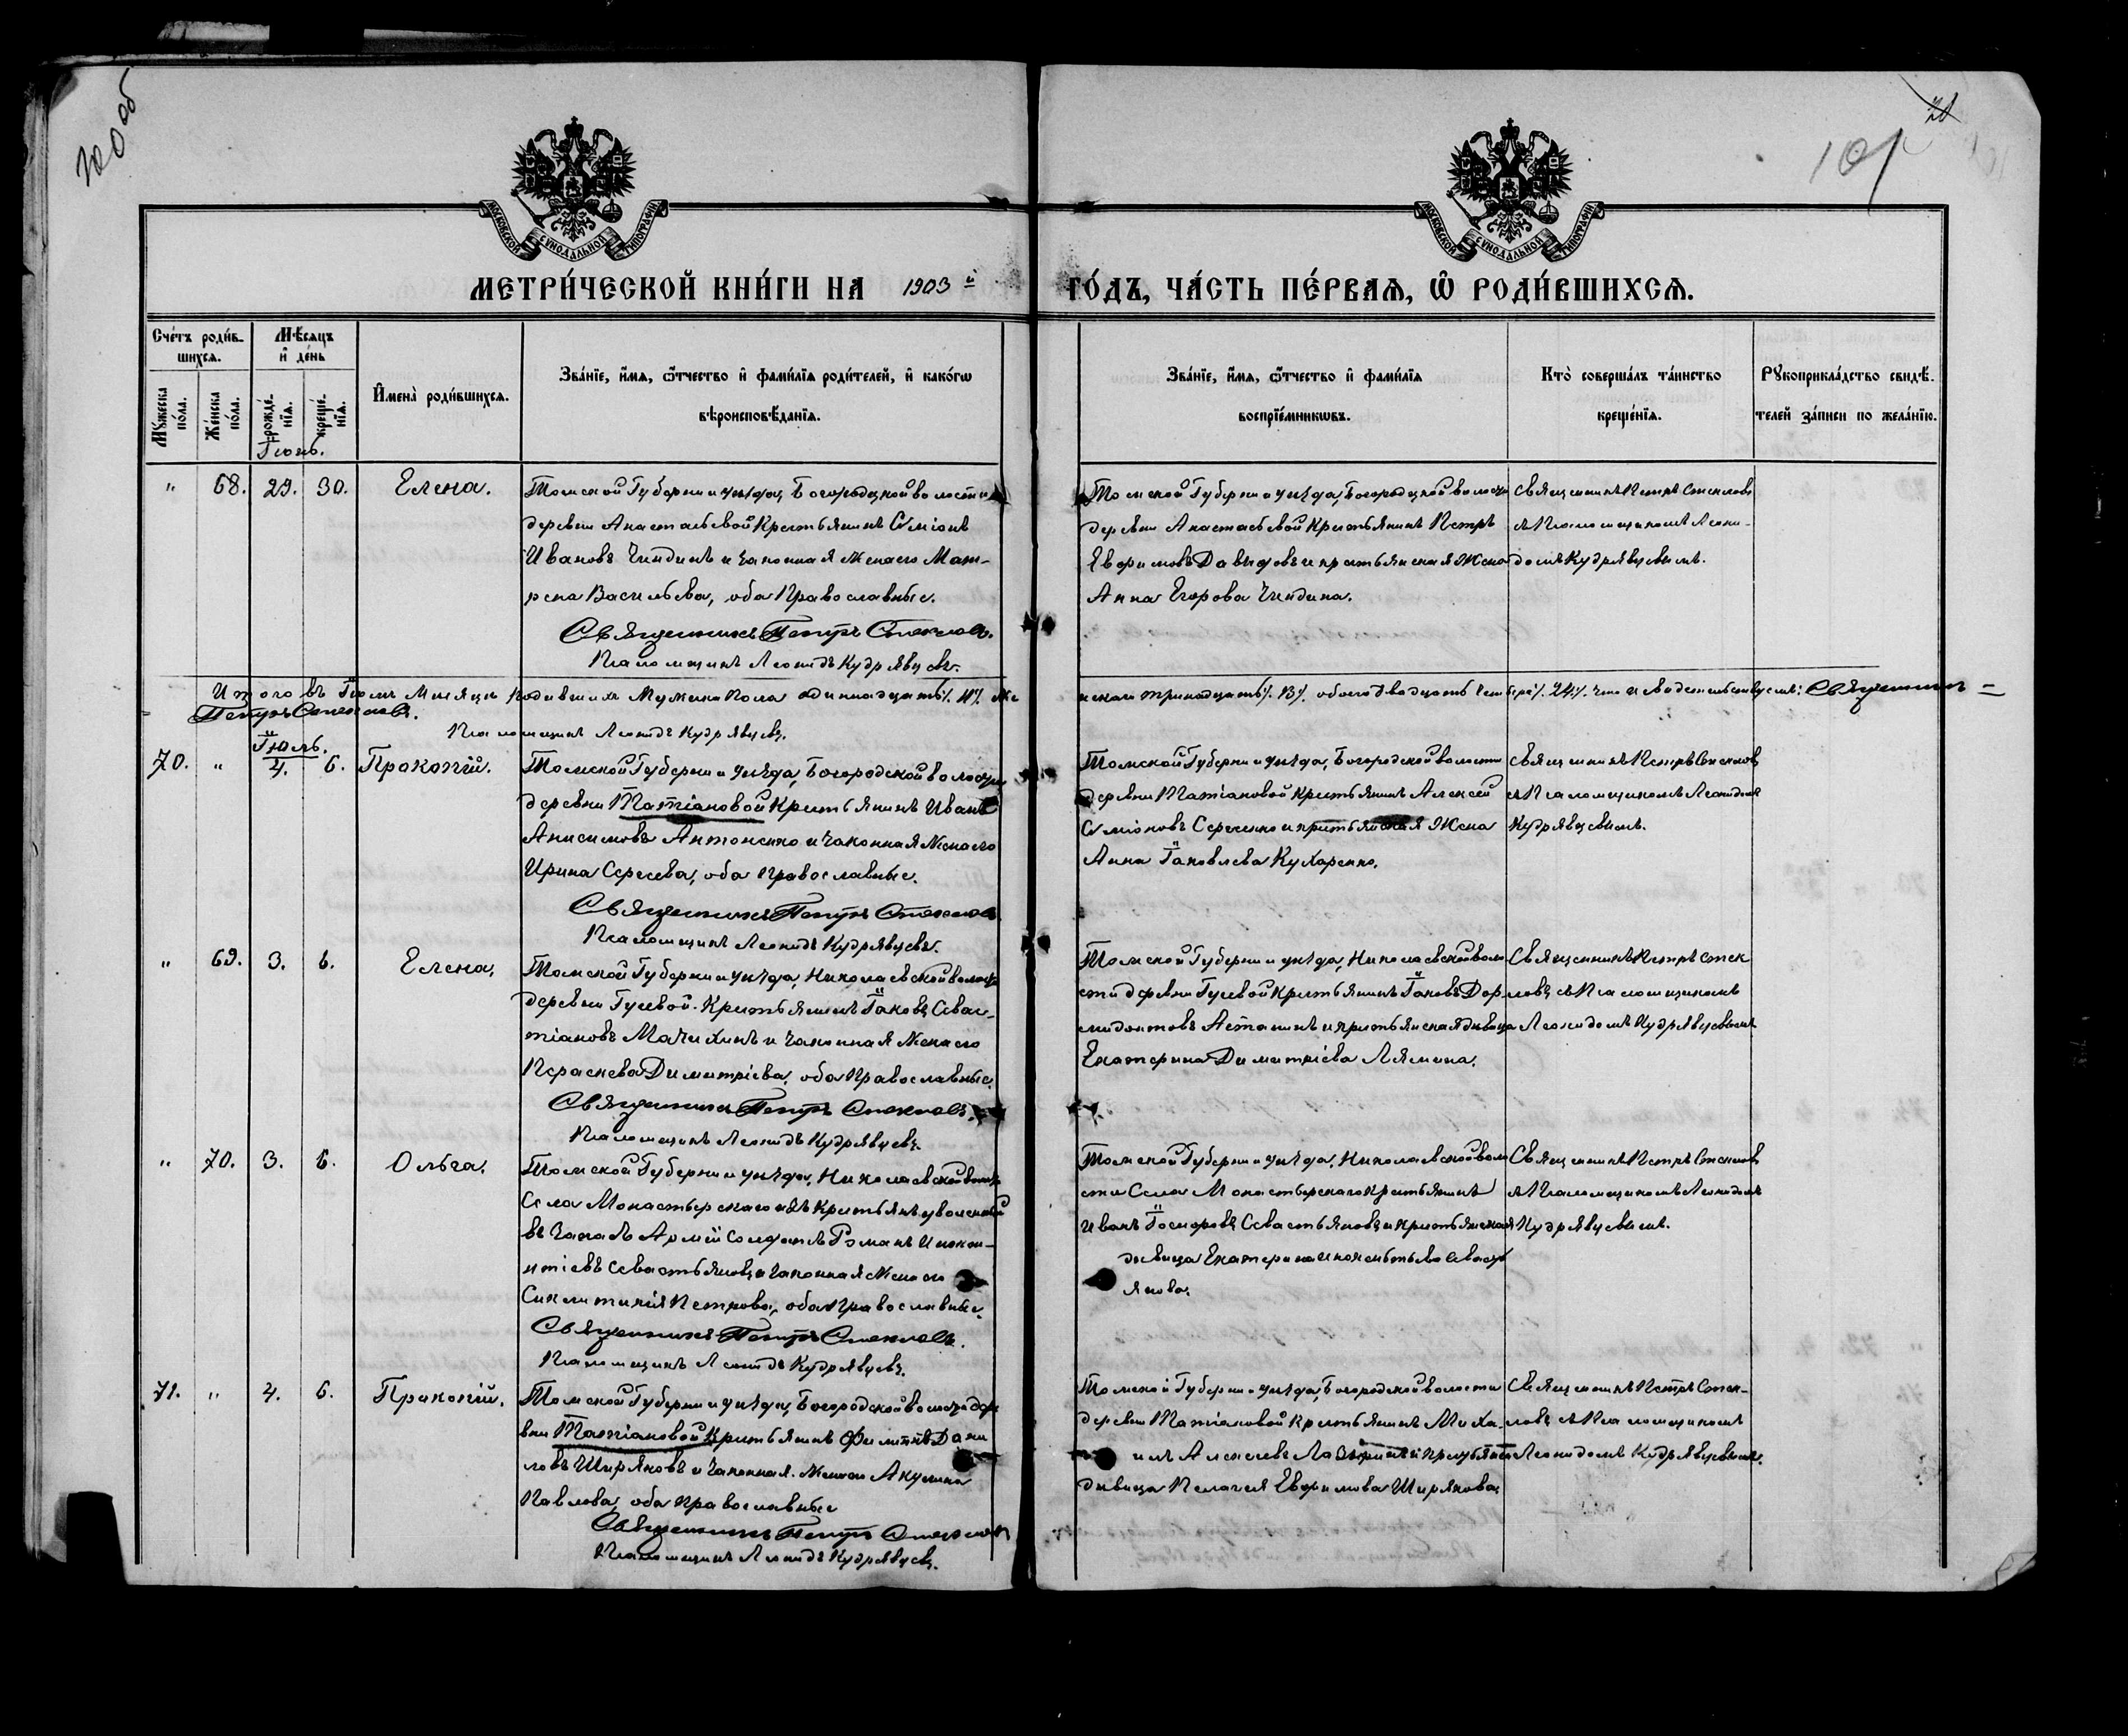 100 об
21
101
МОСКОВСКОЙ СѴНОДАЛЬНОЙ ТИПОГРАФІИ
МОСКОВСКОЙ СѴНОДАЛЬНОЙ ТИПОГРАФІИ
МЕТРИ́ЧЕСКОЙ КНИ́ГИ НА 1903й ГО́ДЪ, ЧА́СТЬ ПЕ́РВАѦ, Ѡ҆ РОДИ́ВШИХСѦ.
Сче́тъ роди́в-
шихсѧ.
Мѣ́сѧцъ
и҆ де́нь
Мꙋ́жеска по́ла.
Же́нска по́ла.
рожде́-
нїѧ.
креще́-
нїѧ.
И҆мена̀ роди́вшихсѧ.
Зва́нїе, и҆́мѧ, ѻ҆́тчество и҆ фами́лїѧ роди́телей, и҆ како́гѡ
вѣроисповѣ́данїѧ.
Зва́нїе, и҆́мѧ, ѻ҆́тчество и҆ фами́лїѧ
воспрїе́мникѡвъ.
Кто̀ соверша́лъ та́инство
креще́нїѧ.
Рꙋкоприкла́дство свидѣ́-
телей за́писи по жела́нїю.
Іюнь.
" 68. 29. 30. Елена.
Томской Губерніи и уѣзда, Богородской волости
деревни Анастасьевой Крестьянинъ Симіонъ
Ивановъ Чиндинъ и законная жена его Мат-
рена Васильева, оба Православные.
Священникъ Петръ Стекловъ.
Псаломщикъ Леонидъ Кудрявцевъ.
Томской Губерніи и уѣзда, Богородской волости
деревни Анастасьевой Крестьянинъ Петръ
Ефимовъ Давыдовъ и крестьянская Жена
Анна Егорова Чиндина.
Священникъ Петръ Стекловъ
съ Псаломщикомъ Леони-
домъ Кудрявцевымъ.
Итого въ Іюнѣ Мѣсяцѣ Родившихъ Мужеска Пола одиннадцать /. 11 /. Же
нскаго тринадцать /. 13 /. обоего двадцать четыре /. 24 /. что и свидетельствуемъ: Священникъ =
Петръ Стекловъ.
Псаломщикъ Леонидъ Кудрявцевъ.
Іюль.
70. " 4. 6. Прокопій.
Томской Губерніи и уѣзда, Богородской волости
деревни Татіановой Крестьянинъ Иванъ
Анисимовъ Антоненко и законная Жена его
Ирина Сергеева, оба Православные.
Священникъ Петръ Стекловъ
Псаломщикъ Леонидъ Кудрявцевъ.
Томской Губерніи и уѣзда, Богородской волости
деревни Татіановой Крестьянинъ Алексей
Симіоновъ Сергиенко и крестьянская Жена
Анна Іаковлева Кухаренко.
Священникъ Петръ Стекловъ
съ Псаломщикомъ Леонидомъ
Кудрявцевымъ.
" 69. 3. 6. Елена.
Томской Губерніи и уѣзда, Николаевской волости
деревни Гусевой Крестьянинъ Іаковъ Севас-
тіановъ Мачихинъ и законная Жена его
Параскева Димитріева, оба Православные.
Священникъ Петръ Стекловъ.
Псаломщикъ Леонидъ Кудрявцевъ.
Томской Губерніи и уѣзда, Николаевской воло
сти деревни Гусевой Крестьянинъ Іаковъ Дор-
мидонтовъ Астанинъ и крестьянская дѣвица
Екатерина Димитріева Лямина.
Священникъ Петръ Стек
ловъ съ Псаломщикомъ
Леонидомъ Кудрявцевымъ
" 70. 3. 6. Ольга.
Томской Губерніи и уѣзда, Николаевской волости
Села Монастырскаго изъ Крестьянъ уволенный
въ Запасъ Арміи Солдатъ Романъ Инокен-
нтіевъ Севастьяновъ и законная Жена его
Синклитикія Петрова, оба Православные.
Священникъ Петръ Стекловъ.
Псаломщикъ Леонидъ Кудрявцевъ.
Томской Губерніи и уѣзда, Николаевской воло
сти Села Монастырскаго Крестьянинъ
Иванъ Іосифовъ Севастьяновъ и крестьянская
дѣвица Екатерина Инокентьева Севасть
янова.
Священникъ Петръ Стекловъ
съ Псаломщикомъ Леонидомъ
Кудрявцевымъ.
71. " 4. 6. Прокопій.
Томской Губерніи и уѣзда, Богородской волости дере
вни Татіановой Крестьянинъ Филиппъ Дани
ловъ Ширяковъ и законная Жена его Акулина
Павлова, оба Православные
Священникъ Петръ Стекловъ
Псаломщикъ Леонидъ Кудрявцевъ.
Томской Губерніи и уѣзда, Богородской волости
деревни Татіановой Крестьянинъ Миха-
илъ Алексеевъ и Крестьянская
дѣвица Пелагея Ефимова Ширякова.
Священникъ Петръ Стек-
ловъ съ Псаломщикомъ
Леонидомъ Кудрявцевымъ.